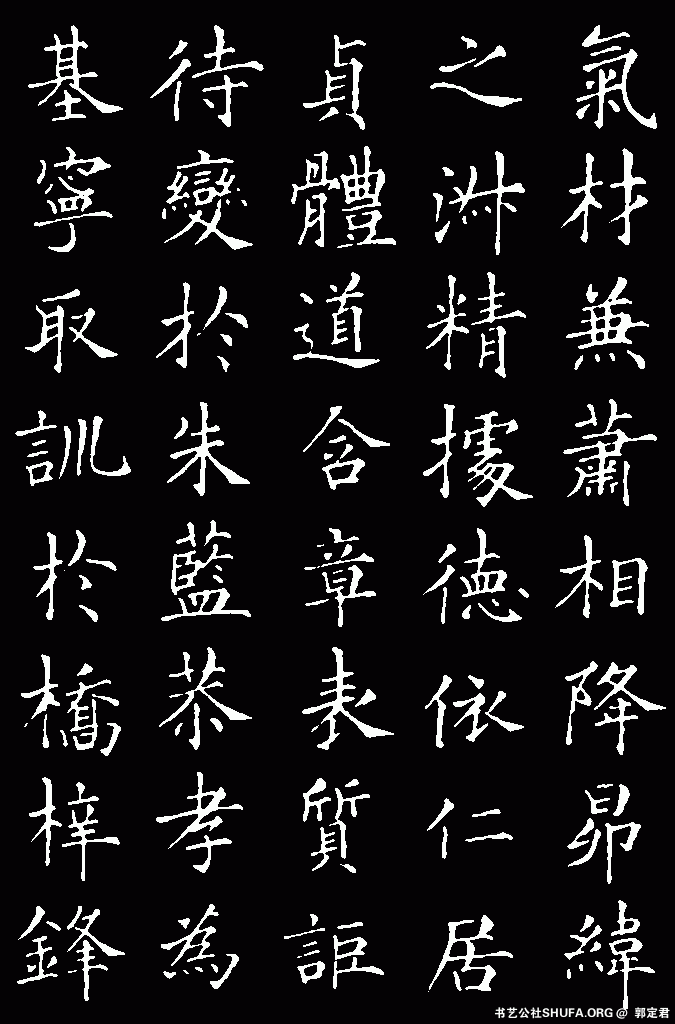 氣材兼蕭相降昴緯
之淑精據德依仁居
貞體道含章表質詎
待變於朱藍恭孝為
基寧取訓於橋梓鋒
书艺公社SHUFA.ORG @ 郭定君